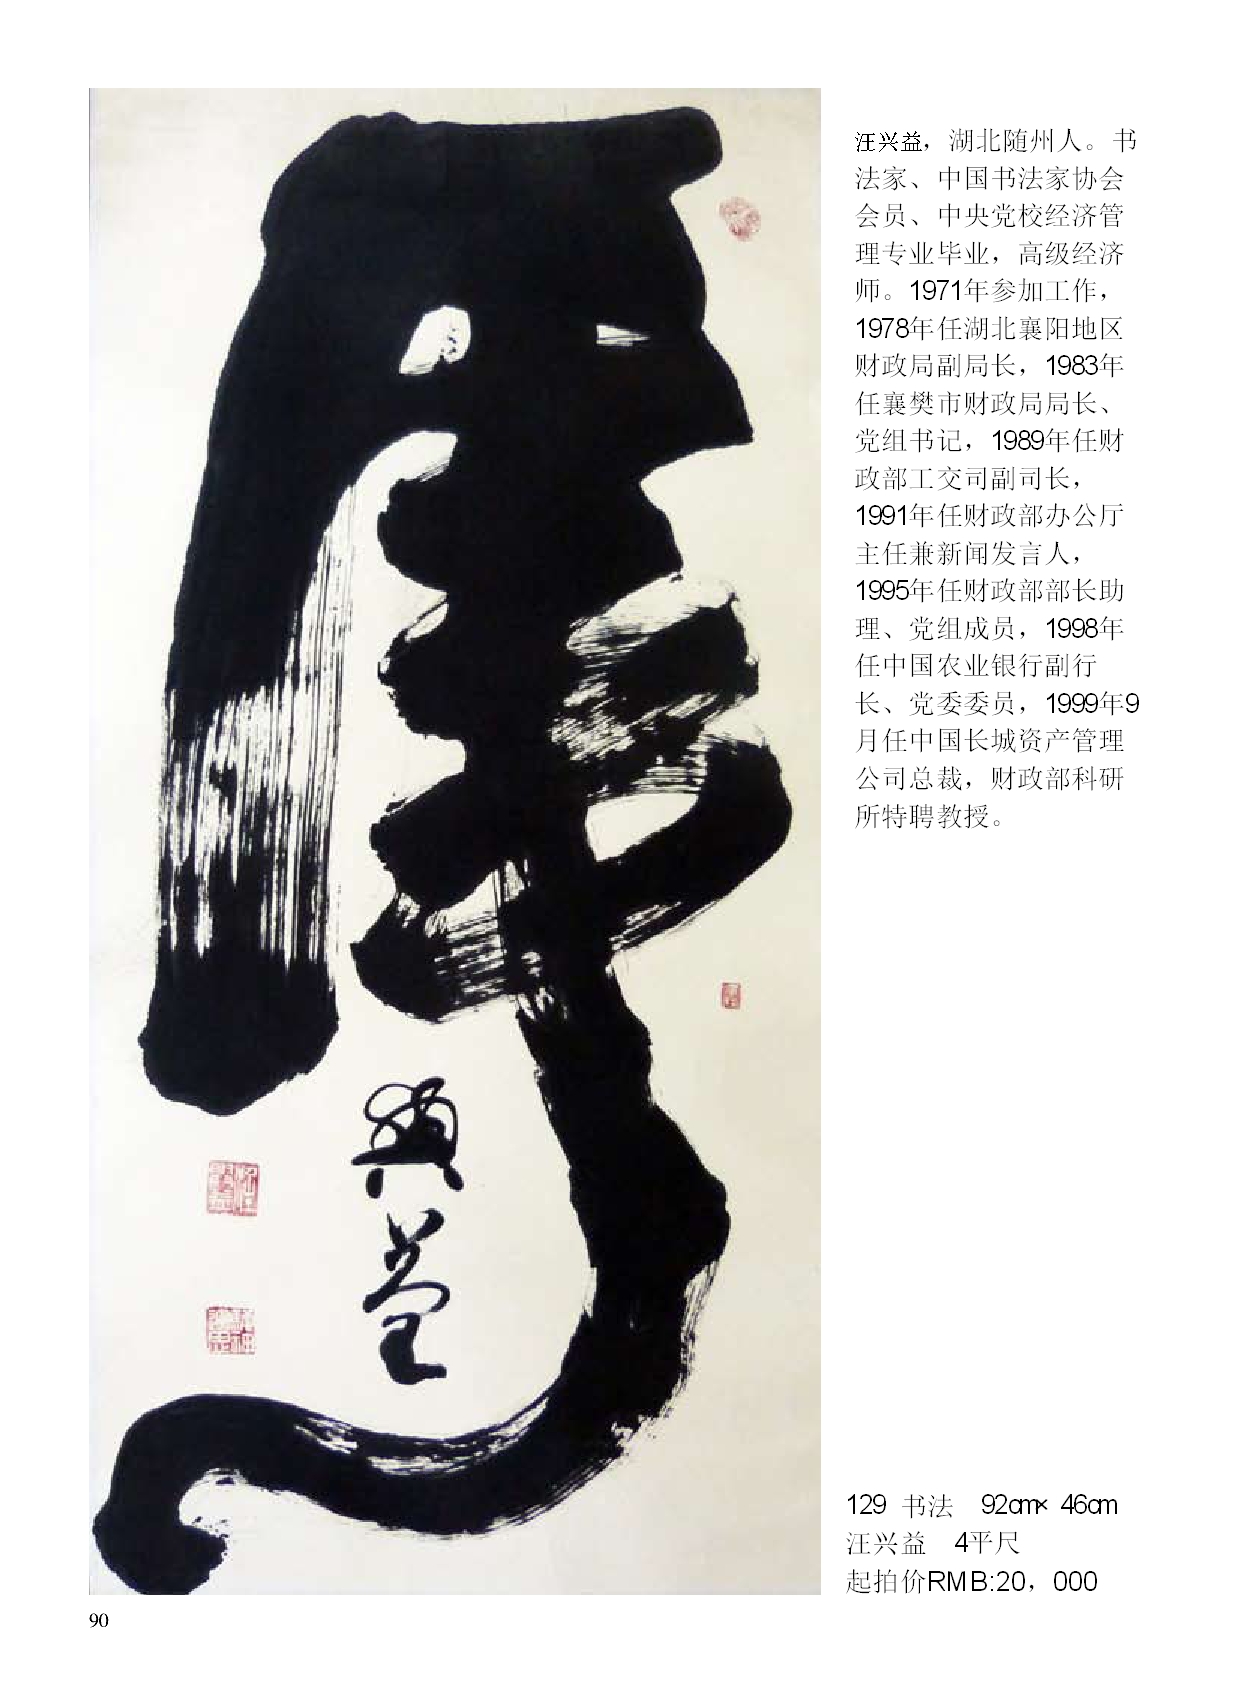 虎
興益
汪兴益，湖北随州人。书
法家、中国书法家协会
会员、中央党校经济管
理专业毕业，高级经济
师。1971年参加工作，
1978年任湖北襄阳地区
财政局副局长，1983年
任襄樊市财政局局长、
党组书记，1989年任财
政部工交司副司长，
1991年任财政部办公厅
主任兼新闻发言人，
1995年任财政部部长助
理、党组成员，1998年
任中国农业银行副行
长、党委委员，1999年9
月任中国长城资产管理
公司总裁，财政部科研
所特聘教授。
129 书法 92cm×46cm
汪兴益 4平尺
起拍价RMB:20，000
90